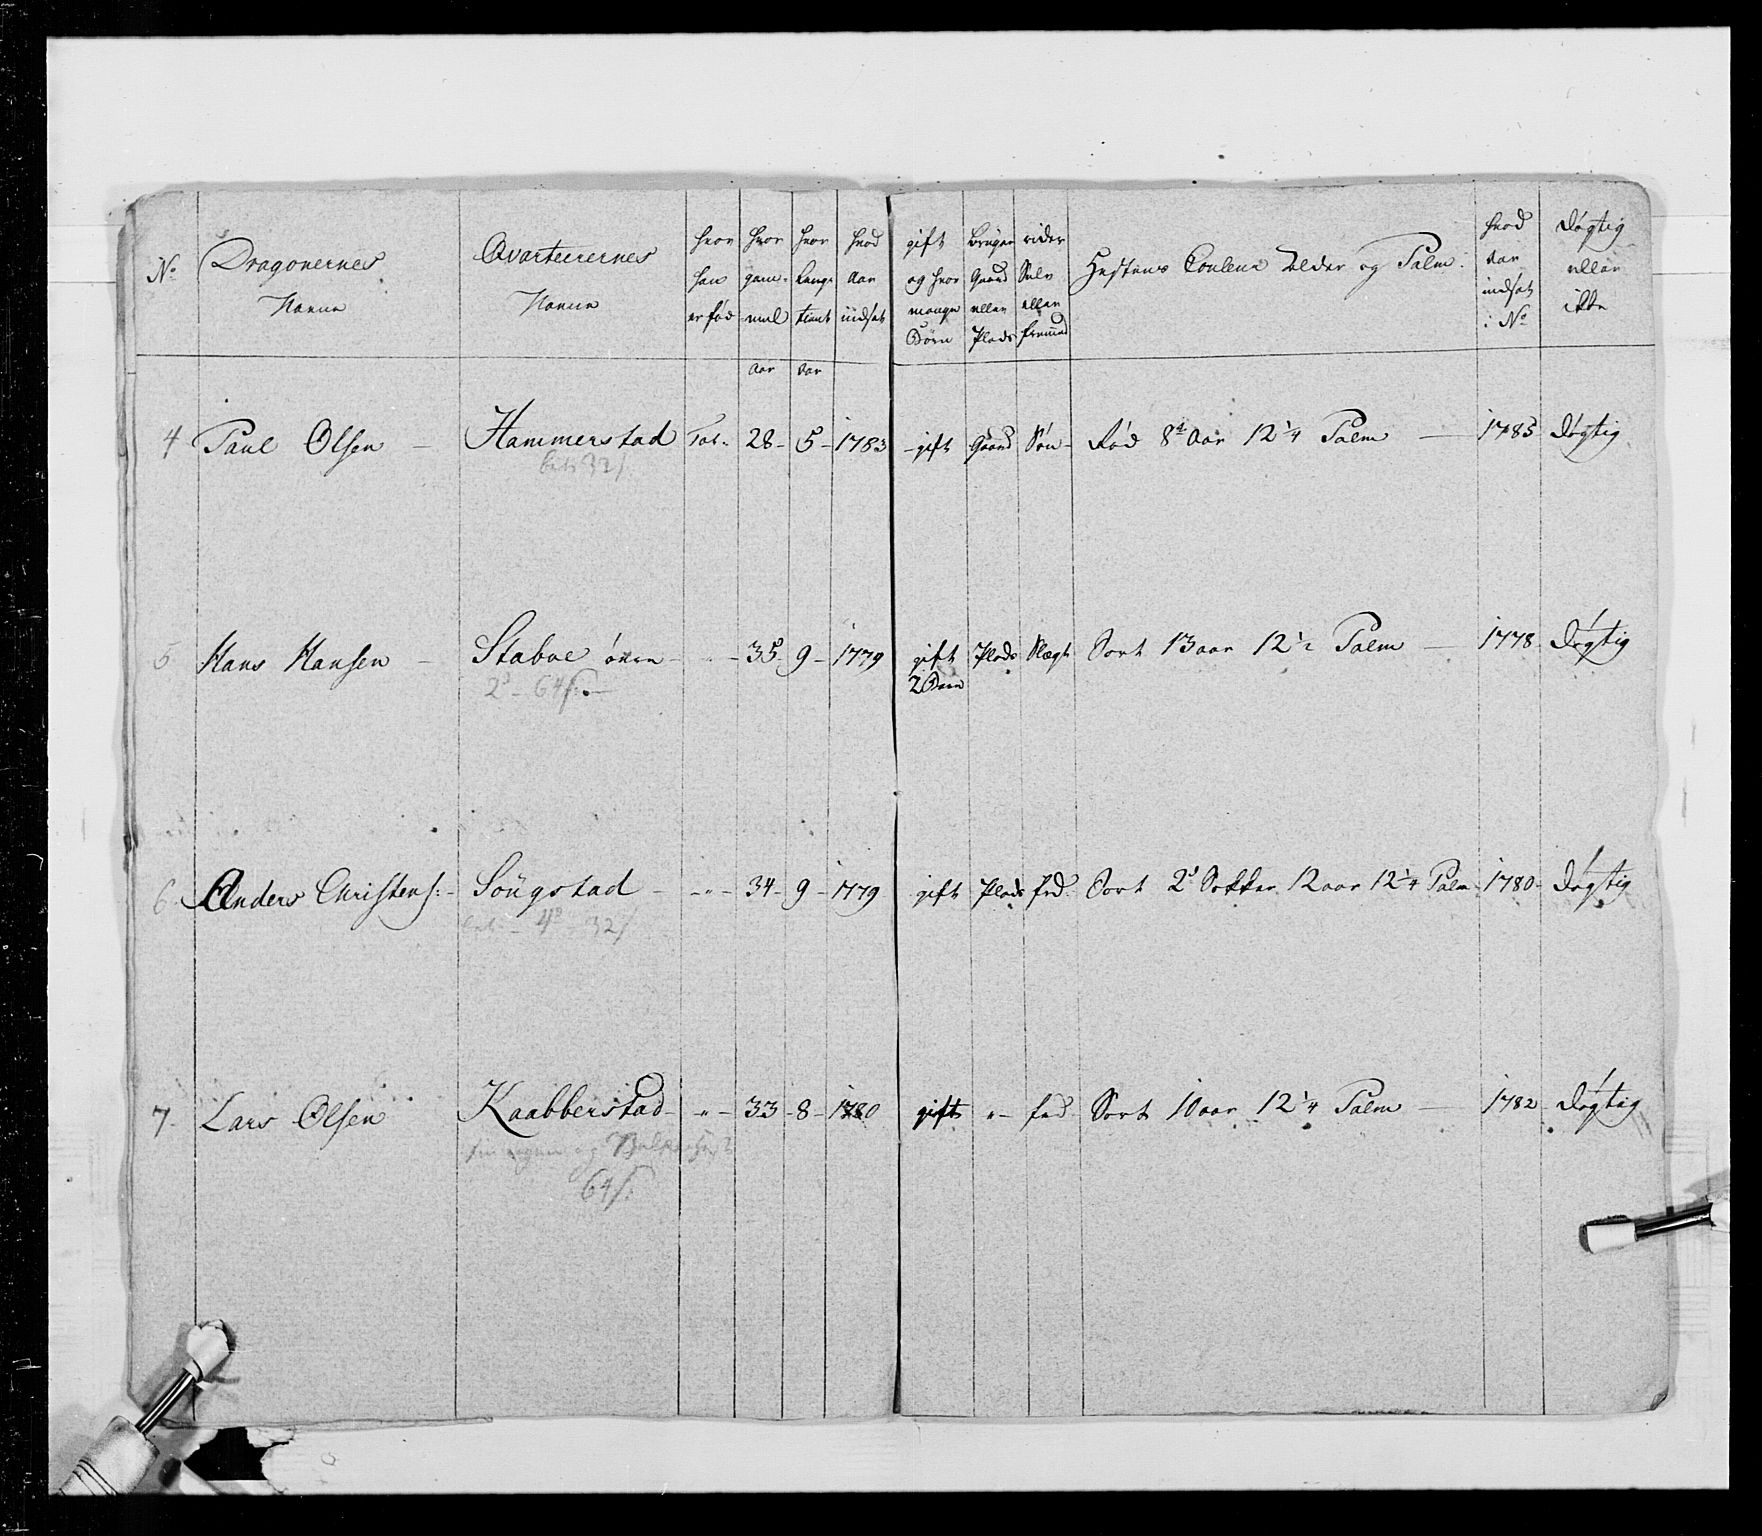 No Dragonernes Navne Qvarteerernes Navne hvor han er fød hvor gammel hvor lenge tient hvad aar indsat gift og hvor mange Børn Bruger Gaard eller Plads rider Selv eller fremmed Hestens Couleur Alder og Palm. hvad aar indsat i No Dygtig eller ikke
aar aar
4 Paul Olsen – Hammerstad Tot. 28 – 5 – 1783 gift Gaard Søn – Rød 8te Aar 12 1/4 Palm — 1785 Dygtig
5 Hans Hansen – Stabue øvre – „ – 35 – 9 – 1779 gift Plads Slægt Sort 13 aar 12 1/2 Palm — 1778 Dygtig
2 – 64 ß. 2 Børn
6 Anders Christens: – Söugstad – „ – 34 – 9 – 1779 gift Plads frd. Sort 2 Sokker 12 aar 12 1/4 Palm – 1780 – Dygtig
4 – 32 ß
7. Lars Olsen Kaabberstad – „ – 33 – 8 – 1780 gift „ – frd Sort 10 aar 12 1/4 Palm — 1782 Dygtig
64 ß.